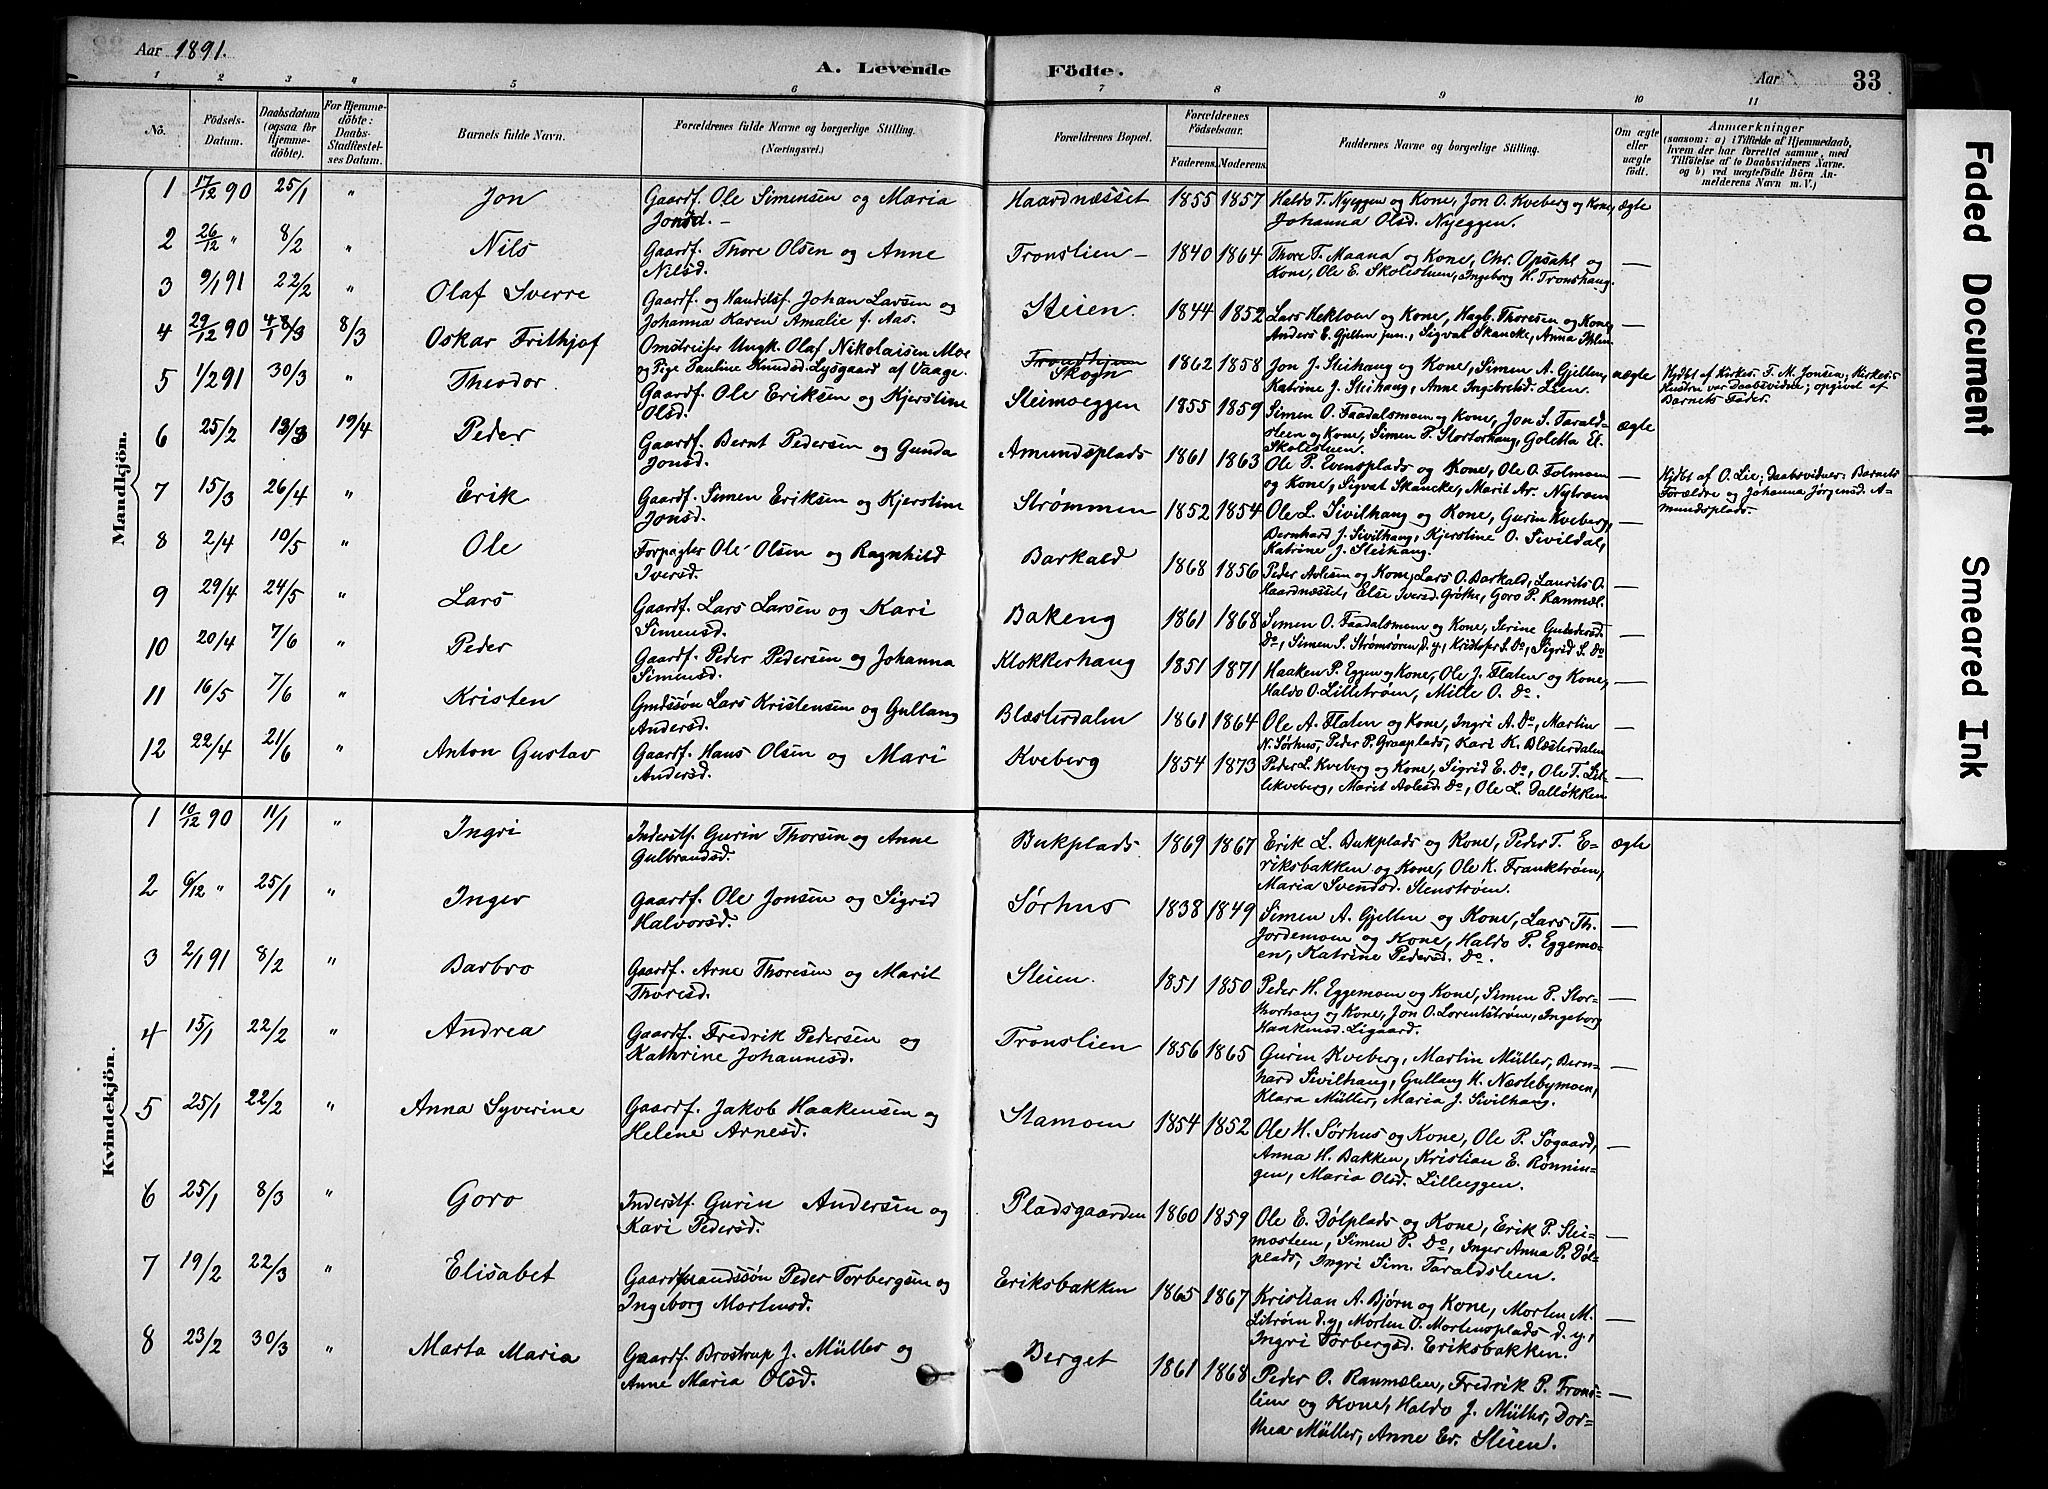 Aar 1891.
A. Levende Födte.
Aar
33
1 2 3 4 5 6 7 8 9 10 11
No.
Födsels-Datum.
Daabsdatum (ogsaa for Hjemme-döbte).
For Hjemme-döbte: Daabs-Stadfæstel-ses Datum.
Barnets fulde Navn.
Forældrenes fulde Navne og borgerlige Stilling. (Næringsvei.)
Forældrenes Bopæl.
Forældrenes Födselsaar.
Faderens. Moderens.
Faddernes Navne og borgerlige Stilling.
Om ægte eller uægte födt.
Anmærkninger
(saasom: a) i Tilfælde af Hjemmedaab, hvem der har forrettet samme, med Tilföielse af to Daabsvidners Navne. og b) ved uægtefödte Börn Anmelderens Navn m. V.)
Mandkjön.
1 17/12 90 25/1 " Jon Gaardf. Ole Simensen og Maria Jonsd. – Haardnæsset 1855 1857 Haldo T. Nyeggen og Kone, Jon O. Kveberg og Kone, Johanna Olsd. Nyeggen. ægte
2 26/12 " 8/2 " Nils Gaardf. Thore Olsen og Anne Nilsd. Tronslien – 1840 1864 Thore T. Maana og Kone, Chr. Opsahl og Kone, Ole E. Skolestuen, Ingeborg H. Tronshaug. —
3 9/1 91 22/2 " Olaf Sverre Gaardf. og Handelsf. Johan Larsen og Johanna Karen Amalie f. Aas. Steien. 1844 1852 Lars Hektoen og Kone, Hagb. Thoresen og Kone, Anders E. Gjelten jun., Sigvat Skancke, Anna —
4 29/12 90 4/1 8/3 8/3 Oskar Frithjof Omstreifer Ungk. Olaf Nikolaisen Moe og Pige Pauline Knudsd. Lysgaard af Vaage. Trondhjem Skogn 1862 1858 Jon J. Steihaug og Kone, Simen A. Gjelten, Katrine J. Steihaug, Anne Ingebretsd. Lien. uægte Hjdbt af Kirkes. T. M. Jonsen; Kirkes. Hustru var Daabsvidne; opgivet af Barnets Fader.
5 1/2 91 30/3 " Theodor. Gaardf. Ole Eriksen og Kjerstine Olsd. Steimoeggen 1855 1859 Simen O. Faadalsmoen og Kone, Jon S. Tarald-steen og Kone, Simen P. Stortorhaug, Goletta El. Skolestuen. ægte
6 25/2 13/3 19/4 Peder Gaardf. Bernt Pedersen og Gunda Jonsd. Amundsplads 1861 1863 Ole P. Evensplads og Kone, Ole O. Tolmoen og Kone, Sigvat Skancke, Marit Ar. Nytrøen — Hjdbt af O. Lie; Daabsvidner: Barnets Forældre og Johanna Jørgensd. A-mundsplads.
7 15/3 26/4 " Erik Gaardf. Simen Eriksen og Kjerstine Jonsd. Strømmen 1852 1854 Ole L. Sivilhaug og Kone, Gurin Kveberg, Bernhard J. Sivilhaug, Kjerstine O. Sivildal, Katrine J. Steihaug. —
8 2/4 10/5 " Ole Forpagter Ole Olsen og Ragnhild Iversd. Barkald 1868 1856 Peder Aolesen og Kone, Lars O. Barkald, Laurits O. Haardnæsset, Else Iversd. Grøtte, Goro P. Ranmæl. —
9 29/4 24/5 " Lars Gaardf. Lars Larsen og Kari Simensd. Bakeng 1861 1868 Simen O. Faadalsmoen og Kone, Serine Gundersd. Do, Simen S. Strømsøren d. y., Kristofer S. Do, Sigrid S. Do —
10 20/4 7/6 " Peder Gaardf. Peder Pedersen og Johanna Simensd. Klokkerhaug 1851 1871 Haaken P. Eggen og Kone, Ole J. Flaten og Kone, Haldo O. Lillestrøen, Mille O. Do. —
11 16/5 7/6 " Kristen Gmdssøn Lars Kristensen og Gullaug Andersd. Blæsterdalen 1861 1864 Ole A. Flaten og Kone, Ingri A. Do, Martin N. Sørhus, Peder P. Graaplads, Kari K. Blæsterdalen —
12 22/4 21/6 " Anton Gustav Gaardf. Hans Olsen og Mari Andersd. Kveberg 1854 1873 Peder L. Kveberg og Kone, Sigrid E. Do, Ole T. Lil-lekveberg, Marit Aolesd. Do, Ole L. Dalløkken —
Kvindekjön.
1 10/12 90 11/1 " Ingri Inderstf. Gurin Thorsen og Anne Gulbrandsd. Bukplads 1869 1867 Erik L. Bukplads og Kone, Peder T. E-riksbakken og Kone, Ole K. Franktrøen, Maria Svendsd. Stenstrøen. ægte
2 6/12 " 25/1 " Inger Gaardf. Ole Jonsen og Sigrid Halvorsd. Sørhus 1838 1849 Simen A. Gjelten og Kone, Lars Th. Jordemoen og Kone, Haldo P. Eggemo-en, Katrine Pedersd. Do. —
3 2/1 91 8/2 " Barbro Gaardf. Arne Thoresen og Marit Thoresd. Steien. 1851 1850 Peder H. Eggemoen og Kone, Simen P. Stor-thorhaug og Kone, Jon O. Lorentstrøen, Ingeborg Haakensd. Ligaard. —
4 15/1 22/2 " Andrea Gaardf. Fredrik Pedersen og Kathrine Johannesd. Tronslien 1856 1865 Gurin Kveberg, Martin Müller, Bern-hard Sivilhaug, Gullaug H. Næstebymoen, Klara Müller, Maria J. Sivilhaug. —
5 25/1 22/2 " Anna Syverine Gaardf. Jakob Haakensen og Helene Arnesd. Stamoen 1854 1852 Ole H. Sørhus og Kone, Ole P. Søgaard, Anna H. Bakken, Kristian E. Rønnin-gen, Maria Olsd. Lilleeggen. —
6 25/1 8/3 " Goro Inderstf. Gurin Andersen og Kari Pedersd. Pladsgaarden 1860 1859 Ole E. Dølplads og Kone, Erik P. Stei-mosteen, Simen P. Do, Inger Anna P. Døl-plads, Ingri Sim. Taraldsteen. —
7 19/2 22/3 " Elisabet Gaardmandssøn Peder Torbergsen og Ingeborg Mortensd. Eriksbakken 1865 1867 Kristian A. Bjørn og Kone, Morten M. Litrøen d. y., Morten O. Mortensplads d. y., Ingri Torbergsd. Eriksbakken. —
8 23/2 30/3 " Marta Maria Gaardf. Brostrup J. Müller og Anne Maria Olsd. Berget 1861 1868 Peder O. Ranmælen, Fredrik P. Trons-lien og Kone, Haldo J. Müller, Dor-thea Müller, Anne Er. Steien. —
Faded Document
Smeared Ink